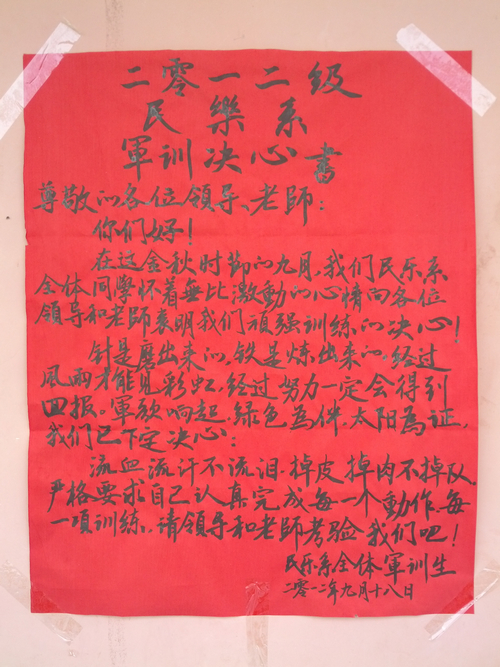 二零一二级
民樂系
軍训决心書
尊敬的各位領导、老師：
你们好！
在这金秋时節的九月，我们民乐系
全体同學怀着無比激動的心情向各位
領导和老師表明我们頑强訓練的决心！
针是磨出来的，铁是炼出来的，经过
風雨才能見彩虹，经过努力一定会得到
回报。軍歌响起，绿色為伴，太阳為证，
我们已下定决心：
流血流汗不流泪，掉皮掉肉不掉队，
严格要求自己认真完成每一个動作，每
一項訓練，请領导和老師考验我们吧！
民乐系全体軍训生
二零一二年九月十八日